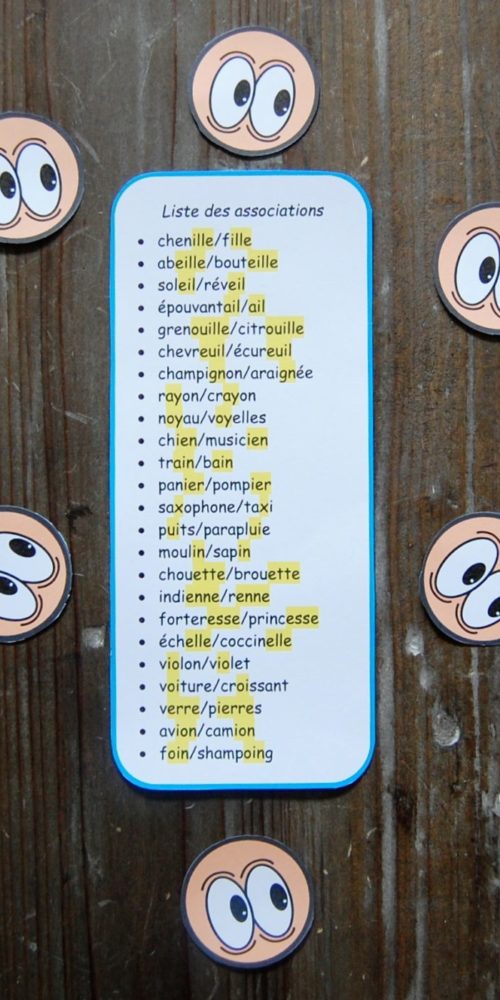 Liste des associations
• chenille/fille
• abeille/bouteille
• soleil/réveil
• épouvantail/ail
• grenouille/citrouille
• chevreuil/écureuil
• champignon/araignée
• rayon/crayon
• noyau/voyelles
• chien/musicien
• train/bain
• panier/pompier
• saxophone/taxi
• puits/parapluie
• moulin/sapin
• chouette/brouette
• indienne/renne
• forteresse/princesse
• échelle/coccinelle
• violon/violet
• voiture/croissant
• verre/pierres
• avion/camion
• foin/shampoing